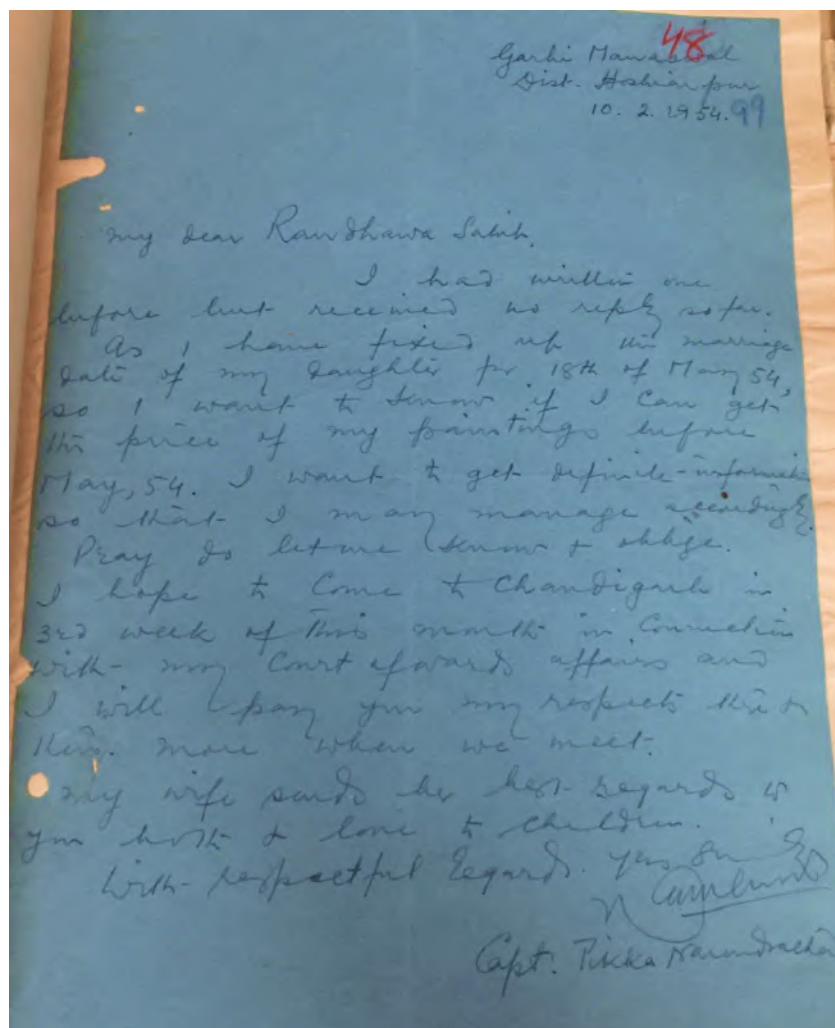 48
Garhi Manaswal
Dist. Hoshiarpur
10. 2. 1954. 99
My dear Randhawa Sahib,
I had written one
before but received no reply so far.
As I have fixed up the marriage
date of my daughter for 18th of May 54,
so I want to know if I can get
the price of my paintings before
May, 54. I want to get definite information
so that I may manage accordingly.
Pray do let me know & oblige.
I hope to come to Chandigarh in
3rd week of this month in connection
with my Court of wards affairs and
I will pay you my respects then &
there. More when we meet.
My wife sends her best regards to
you both & love to children.
With respectful regards. Yrs
Capt. Tikka